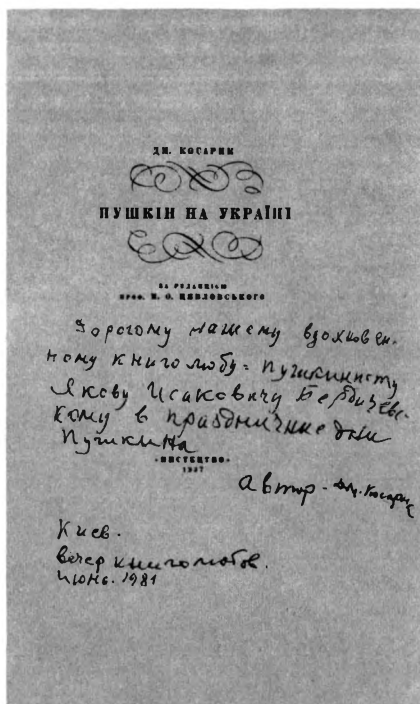 ДМ. КОСАРИК
ПУШКІН НА УКРАЇНІ
ЗА РЕДАКЦІЄЮ
ПРОФ. М. О. ЦЯВЛОВСЬКОГО
Дорогому нашему вдохновен-
ному книголюбу-пушкинисту
Якову Исаковичу Бердичевс-
кому в праздничные дни
Пушкина
«МИСТЕЦТВО»
1937
Автор - Дм. Косарик
Киев.
Вечер книголюбов.
Июнь. 1981